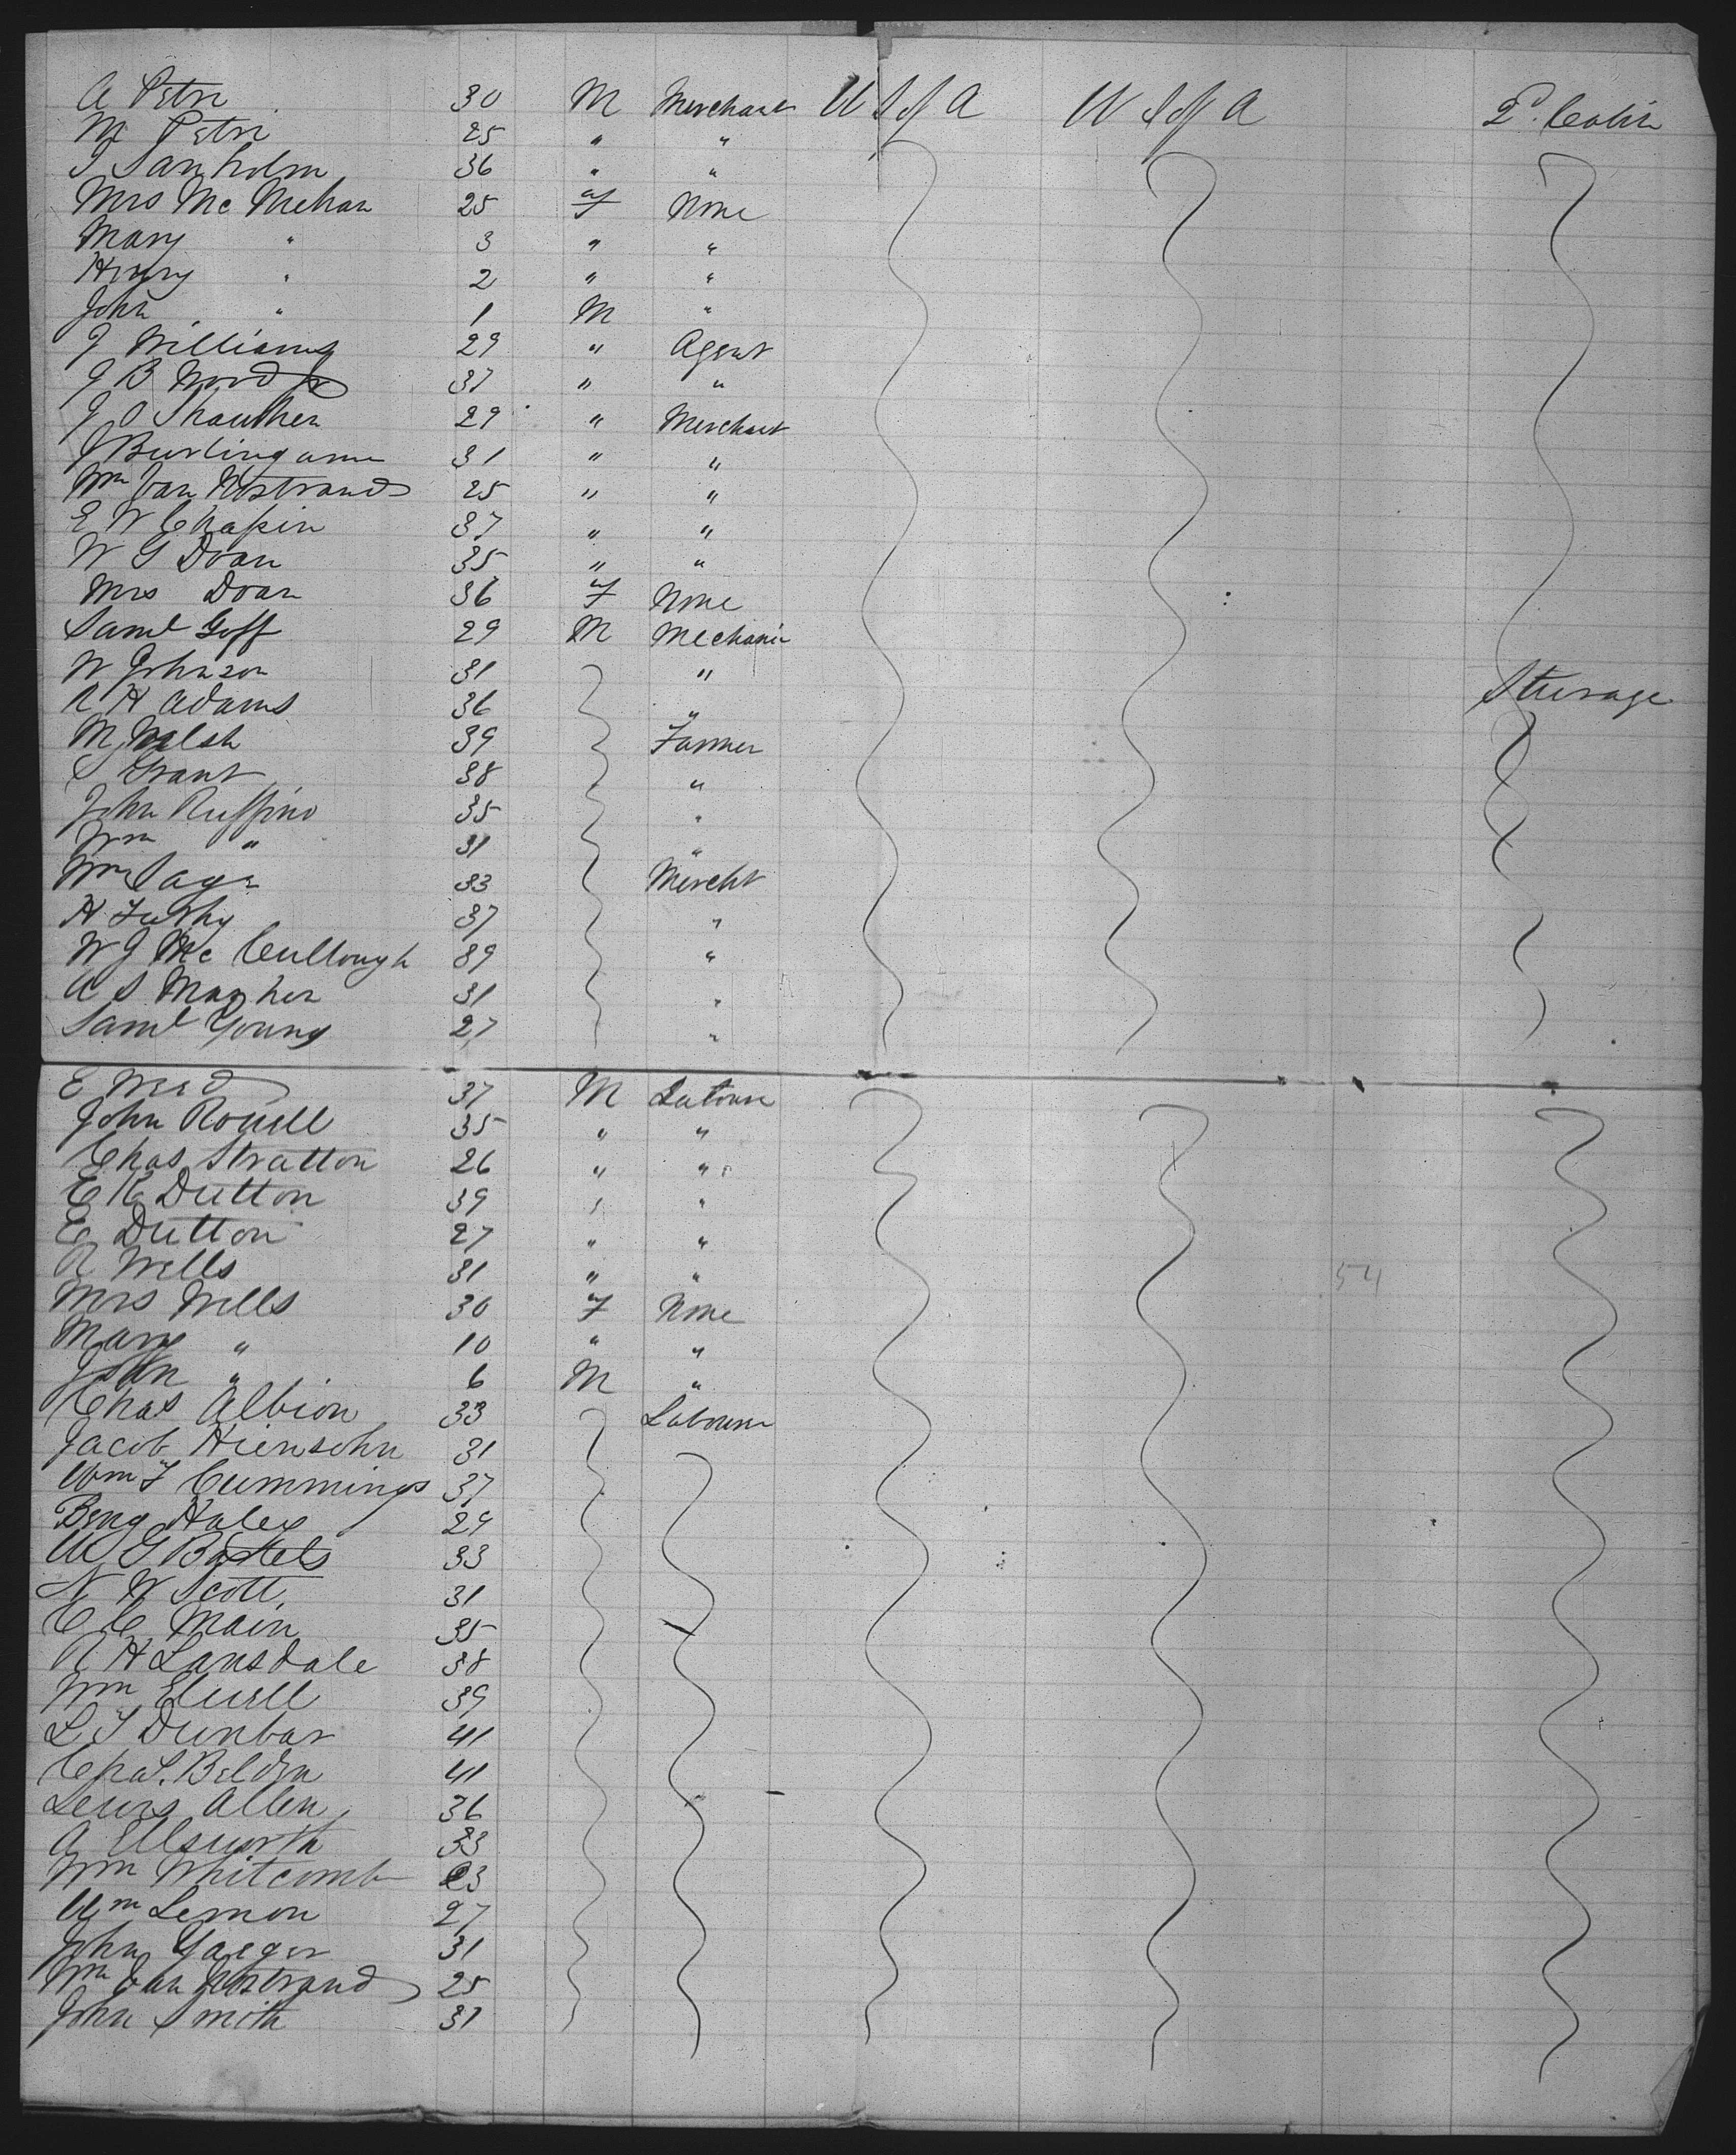 A Petri 30 M Merchant U S of A U S of A 2d Cabin
M Petri 25 " "
36 " "
Mrs Mc Mehan 25 f None
Mary " 3 " "
" 2 " "
John " 1 M "
J Williams 29 " Agent
J B Wood Jr 37 " "
J O 29 " Merchant
J Burlingame 31 " "
Wm Van Nostrand 25 " "
E W Chapin 37 " "
W G Doan 35 " "
Mrs Doan 36 f None
Saml Goff 29 M Mechanic
W Johnson 31 " Sterage
A H Adams 36 "
M Walsh 39 Farmer
S Grant 38 "
John Ruffino 35 "
Wm " 31 "
Wm Page 33 Mercht
H 37 "
W J Mc Cullough 39 "
A S 31 "
Saml Young 27 "
E Weed 37 M Laborer
John Rouell 35 " "
Chas Stratton 26 " "
C R Dutton 39 " "
E Dutton 27 " "
R Wells 31 " "
Mrs Wells 30 f None
Mary " 10 " "
John " 6 M "
Chas Albion 33 Laborer
Jacob Hiensohn 31
Wm F Cummings 37
Benj Haley 29
W G Bartels 33
N W Scott 31
C C Main 35
R H Lansdale 38
Wm Eluell 39
L T Dunbar 41
Chas. Belden 41
Lewis Allen 36
A Ellsworth 33
Wm Whitcomb 23
Wm Lemon 27
John Yaeger 31
Wm Van Nostrand 25
John Smith 31
54